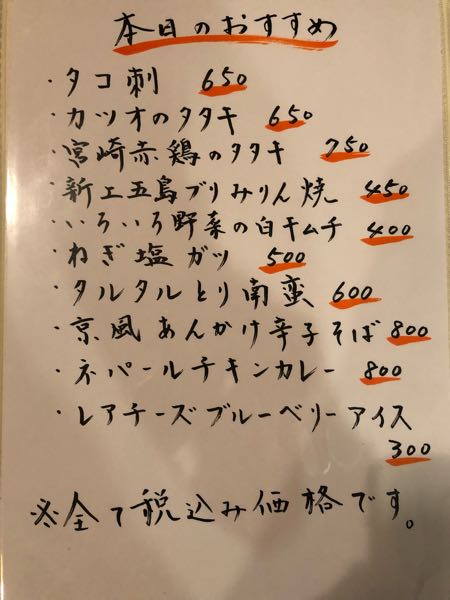 本日のおすすめ
・タコ刺 650
・カツオのタタキ 650
・宮崎赤鶏のタタキ 750
・新上五島ブリみりん焼 450
・いろいろ野菜の白キムチ 400
・ねぎ塩ガツ 500
・タルタルとり南蛮 600
・京風あんかけ辛子そば 800
・ネパールチキンカレー 800
・レアチーズブルーベリーアイス
300
※全て税込み価格です。